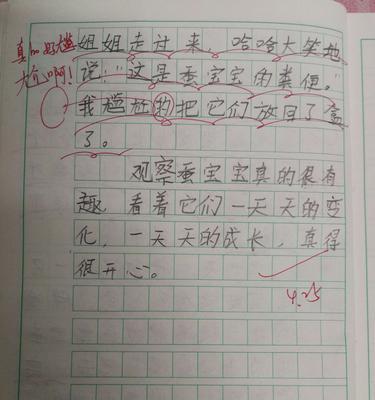 真的好尴
尬啊！
姐姐走过来，哈哈大笑地
说："这是蚕宝宝的粪便。"
我尴尬的把它们放回了盒
了。
观察蚕宝宝真的很有
趣，看着它们一天天的变
化，一天天的成长，真得
很开心。
4.25